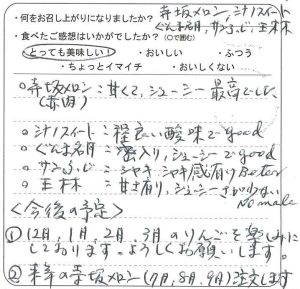 ・何をお召し上がりになりましたか?
寺坂メロン,シナノスイート
ぐんま名月,サンふじ,王林
・食べたご感想はいかがでしたか?(○で囲む)
・とっても美味しい!・おいしい・ふつう
・ちょっとイマイチ・おいしくない
○寺坂メロン:甘くて,ジューシー最高でした.
(赤肉)
○シナノスイート:程良い酸味でgood
○ぐんま名月:蜜入り,ジューシーでgood
○サンふじ:シャキシャキ感有りBetter
○王林:甘さ有り,ジューシー
Nomale
<今後の予定>
①12月,1月,2月,3月のりんごを楽しみに
しております。ようしくお願いします。
②来年の寺坂メロン(7月,8月,9月)注文します